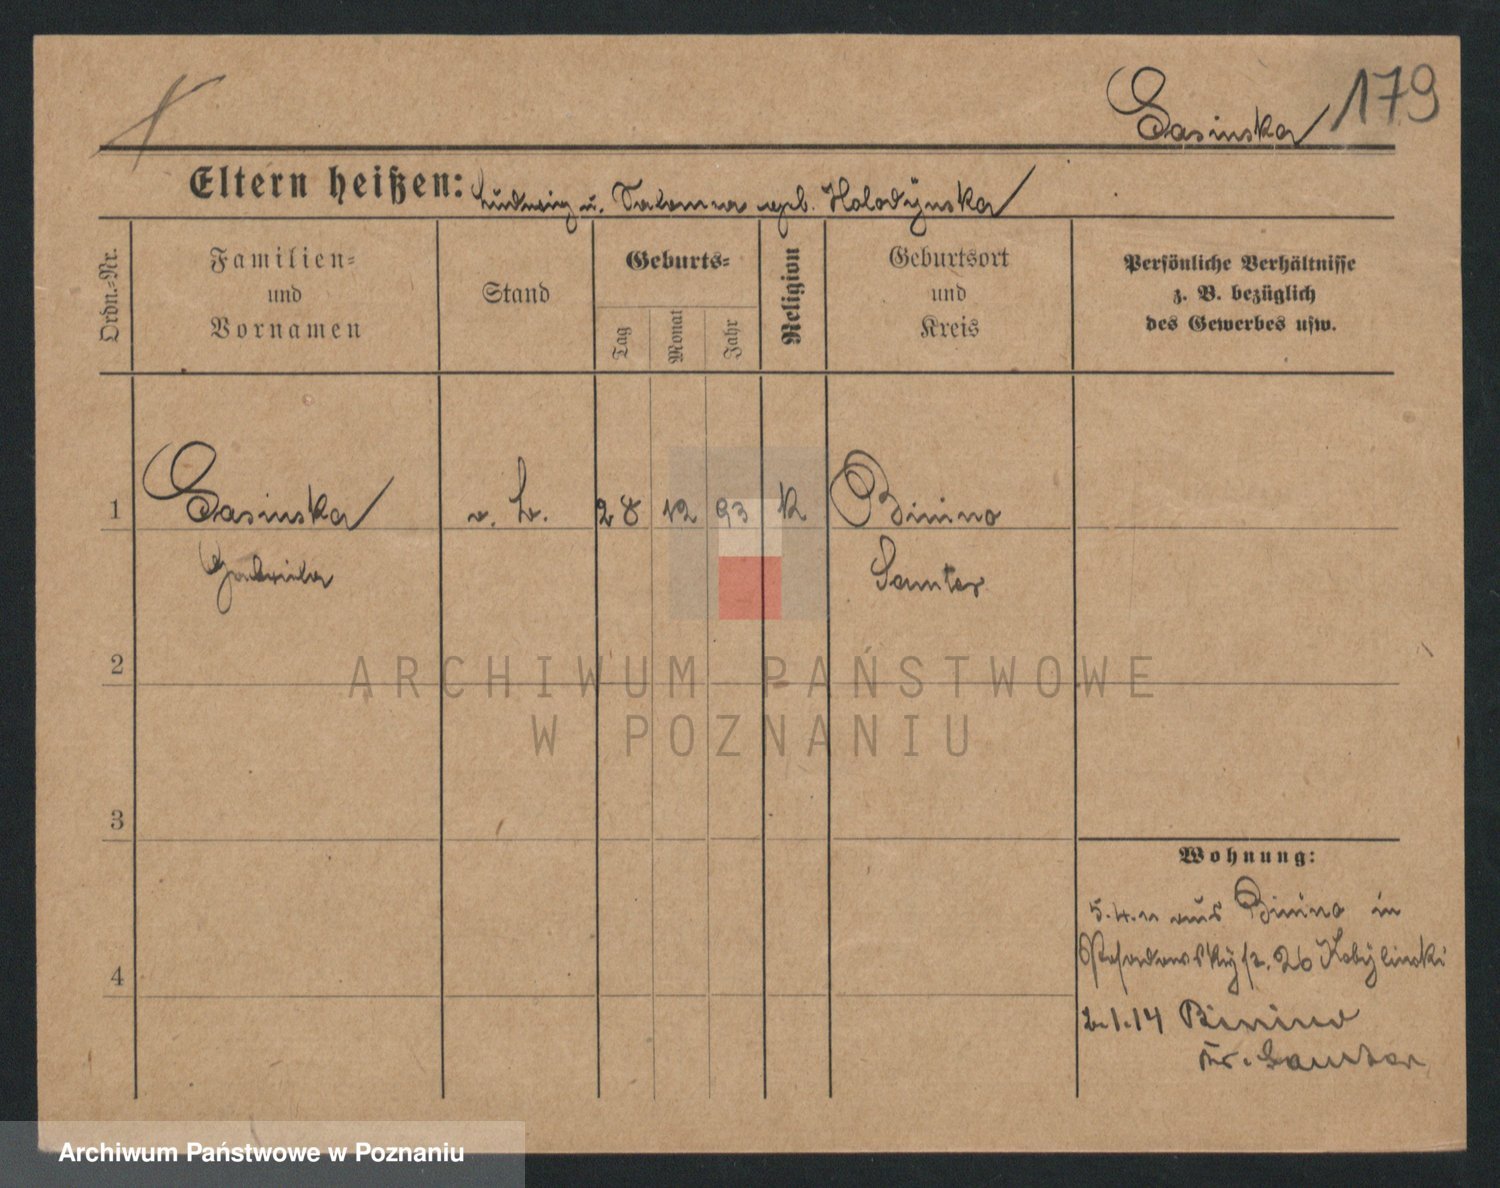 Gasinska 179
Eltern heißen: Ludwig u. Salomea geb. Holodynska
Ordn.-Nr.
Familien-
und
Vornamen
Stand
Geburts-
Tag
Monat
Jahr
Religion
Geburtsort
und
Kreis
Persönliche Verhältnisse
z. B. bezüglich
des Gewerbes usw.
1 Gasinska 28 12 93 K Binino
Samter
2
ARCHIWUM PAŃSTWOWE
W POZNANIU
3
Wohnung:
aus Binino in
26 Kobylinski
4
2.1.14 Binino
Kr. Samter
Archiwum Państwowe w Poznaniu